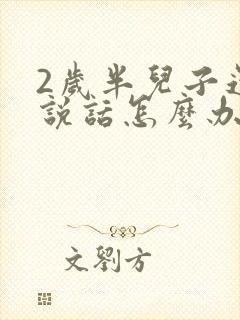 2歲半兒子還
說話怎麼办
文劉方